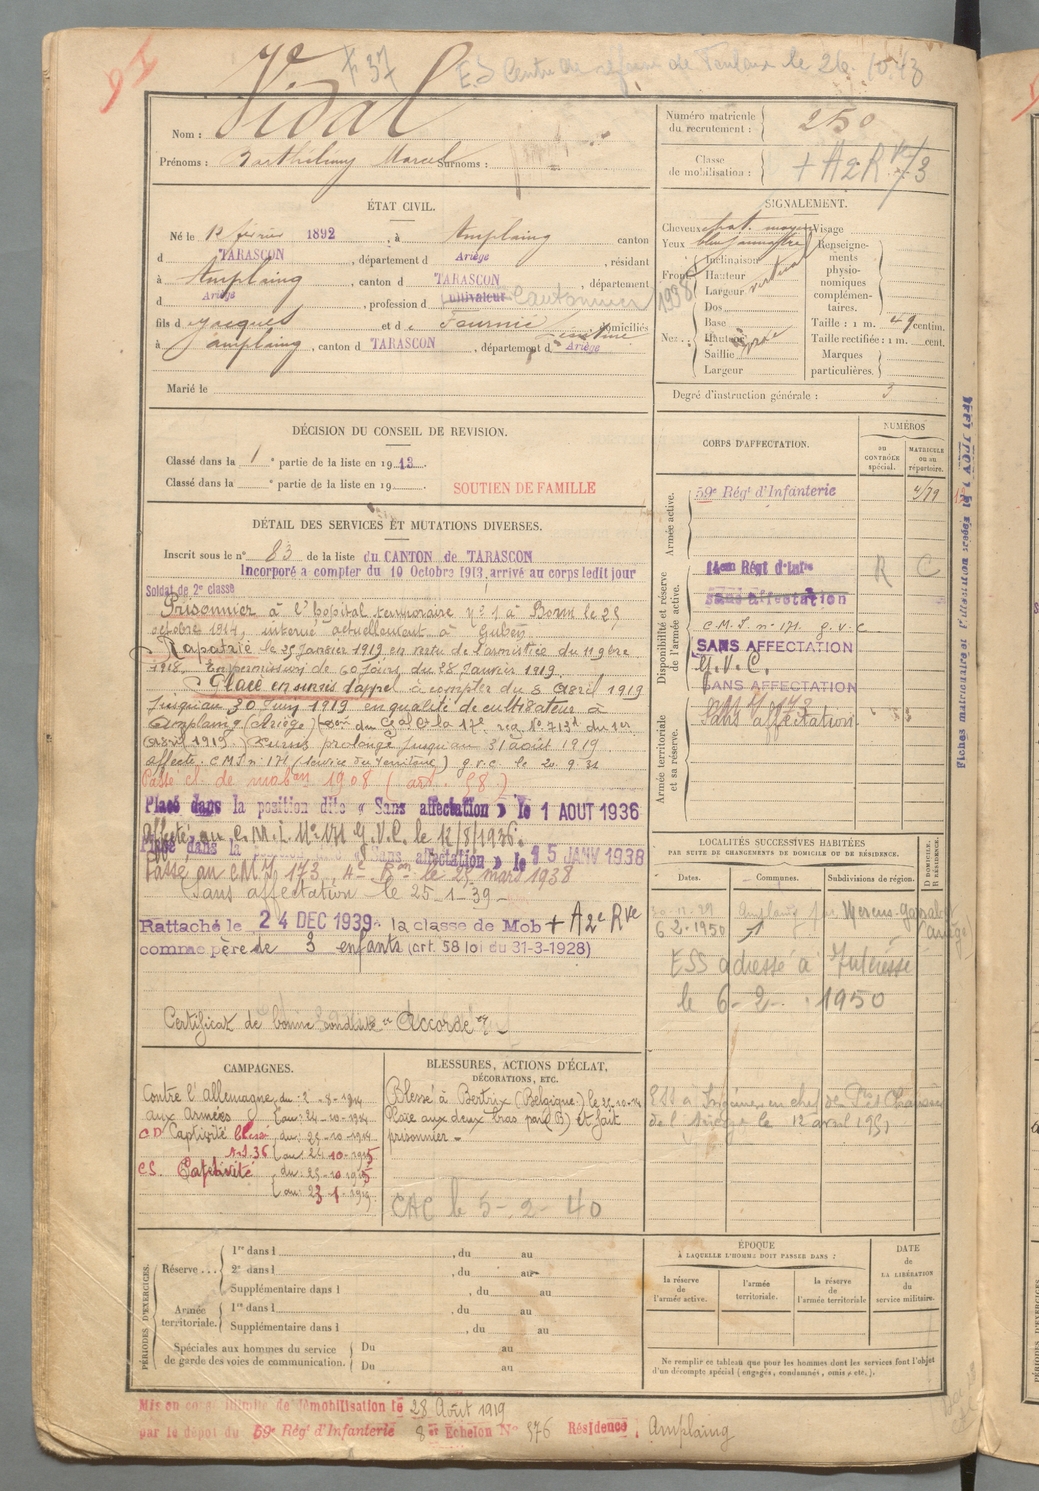 91
F 37
ES Centre de réforme de Toulouse le 26.10.43
Nom : Vidal
Prénoms : Barthélemy Marcel Surnoms :
Numéro matricule du recrutement : 250
Classe de mobilisation : + A2 Rve
ÉTAT CIVIL.
Né le février 1892, à Amplaing canton
d TARASCON, département d Ariège, résidant
à Amplaing, canton d TARASCON, département
d Ariège, profession d cultivateur Cantonnier 1938
fils d Jacques et de Fournié domiciliés
à Amplaing, canton d TARASCON, département d Ariège
Marié le
SIGNALEMENT.
Cheveux chat. moyen Visage
Yeux bleu jaunâtre Renseigne-
ments
physio-
nomiques
complémen-
taires.
Front
Inclinaison
Hauteur
Largeur
vertical
Nez
Dos
Base
Hauteur
Saillie
Largeur
Taille : 1 m. 49 centim.
Taille rectifiée : 1 m. cent.
Marques
particulières.
Degré d'instruction générale : 3
DÉCISION DU CONSEIL DE REVISION.
Classé dans la 1e partie de la liste en 1913.
Classé dans la e partie de la liste en 19
SOUTIEN DE FAMILLE
DÉTAIL DES SERVICES ET MUTATIONS DIVERSES.
Inscrit sous le n° 83 de la liste du CANTON de TARASCON
Incorporé a compter du 10 Octobre 1913, arrivé au corps ledit jour
Soldat de 2e classe
Prisonnier à l'hôpital temporaire n° 1 à Bonn le 25
octobre 1914, interné actuellement à Guben
Rapatrié le 25 Janvier 1919 en vertu de l'armistice du 11 9bre
1918. En permission de 60 jours, du 28 Janvier 1919
Placé en sursis d'appel à compter du 8 Avril 1919
Jusqu'au 30 Juin 1919 en qualité de cultivateur à
Amplaing (Ariège) du Gal Ct la 17e rég. N° 713 du 1er
Avril 1919. Sursis prolongé jusqu'au 31 août 1919
affecté C.M.I. n° 171 (Service du Territoire) g.v.c. le 20.9.32
Passé cl. de mobon 1908 (art. 58)
Placé dans la position dite « Sans affectation » le 1 AOUT 1936
Affecté au C.M.I. N° 171 G.V.C. le 12/8/1936.
Placé dans la « Sans affectation » le 15 JANV 1938
Passé au CMI 173, le 25 mars 1938
Sans affectation le 25-1-39
Rattaché le 24 DEC 1939 à la classe de Mob + A2e Rve
comme père de 3 enfants (art. 58 loi du 31-3-1928)
Certificat de bonne conduite « Accordé »
CORPS D'AFFECTATION.
NUMÉROS
au CONTRÔLE spécial.
MATRICULE ou au répertoire.
Armée active.
59e Régt d'Infanterie
Disponibilité et réserve de l'armée active.
14em Régt d'Infie R C
sans affectation
C.M.I. n° 171 g.v.c
SANS AFFECTATION
G.V.C.
SANS AFFECTATION
CMI 173
Sans affectation
Armée territoriale et sa réserve.
LOCALITÉS SUCCESSIVES HABITÉES
PAR SUITE DE CHANGEMENTS DE DOMICILE OU DE RÉSIDENCE.
Dates. Communes. Subdivisions de région. D DOMICILE. R RÉSIDENCE.
Amplaing par Mercus-Garrabet
6.2.1950 Ariège
ESS adressé à l'intéressé
le 6-2-1950
ESS à Ingénieur en chef de Pts et Chaussées
de l'Ariège le 12 avril 1951
CAMPAGNES.
Contre l'Allemagne du : 2-8-1914
aux Armées au : 24-10-1914
CD Captivité blessé du : 25-10-1914
au : 24-10-1915
CS. Captivité du : 25-10-1915
au : 23-1-1919
BLESSURES, ACTIONS D'ÉCLAT,
DÉCORATIONS, ETC.
Blessé à Bertrix (Belgique) le
Plaie aux deux bras par B) et fait
prisonnier -
CAC le 5-2-40
PÉRIODES D'EXERCICES.
Réserve...
1re dans l , du au
2e dans l , du au
Supplémentaire dans l , du au
Armée territoriale.
1re dans l , du au
Supplémentaire dans l , du au
Spéciales aux hommes du service
de garde des voies de communication.
Du au
Du au
ÉPOQUE
A LAQUELLE L'HOMME DOIT PASSER DANS :
la réserve de l'armée active.
l'armée territoriale.
la réserve de l'armée territoriale
DATE de LA LIBÉRATION du service militaire.
Ne remplir ce tableau que pour les hommes dont les services font l'objet
d'un décompte spécial (engagés, condamnés, omis, etc.).
Mis en congé illimité de démobilisation le 28 Août 1919
par le dépôt du 59e Régt d'Infanterie 8e Echelon N° 576 Résidence : Amplaing